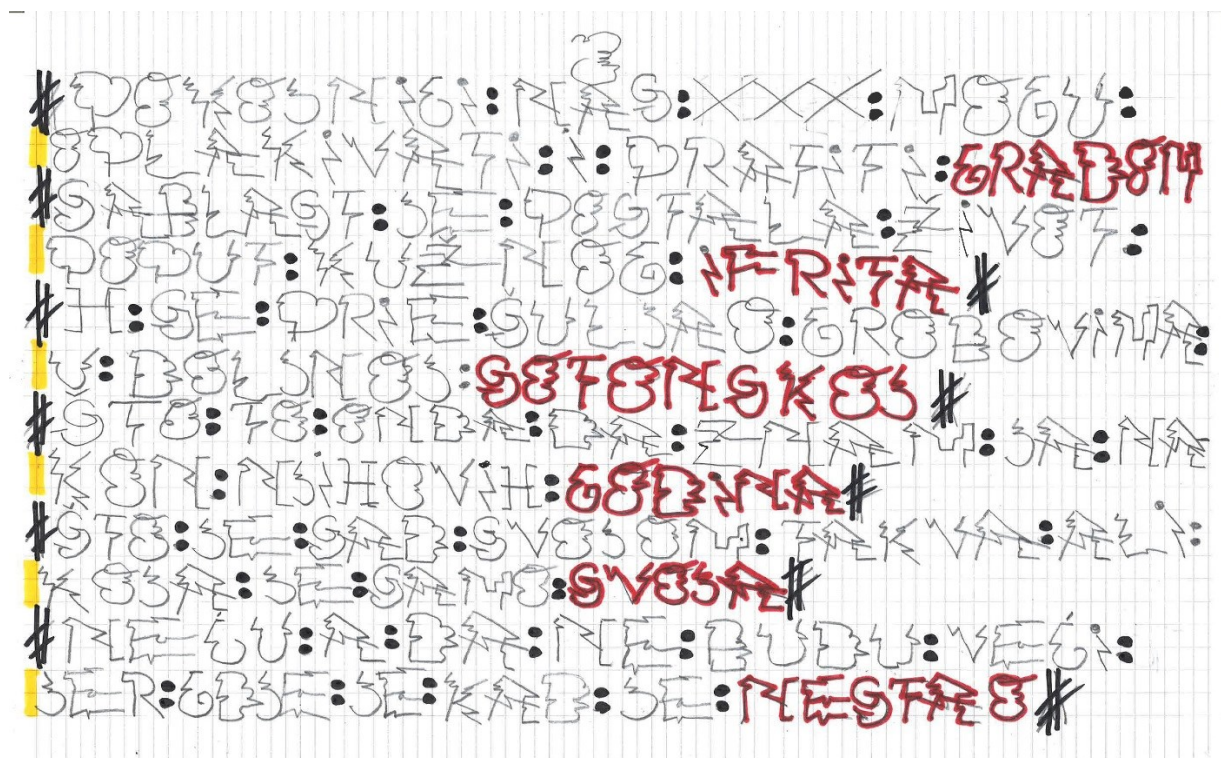 # POKOJNICI: NAS: XXX: MOGU:
OPLAKIVATI: I: PRATITI: GRADOM
# SABLAST: JE: POSTALA: ZIVOT:
POPUT: KUZNOG: IFRITA #
# SE: PRIE: GROBOVIMA:
U: DOLJNOJ: #
# STO: TO: ONDA: DA: ZNAM: JA: NA
KON: NJIHOVIH: GODINA #
# STO: JE: SAD: SVOJOM: TAKVA: ALI:
KOJA: JE: SAMO: SVOJA #
# NE ĆU: A: DA: NE: BUDU: VEĆI:
JER: GDJE: JE: KAD: JE: NESTAO #